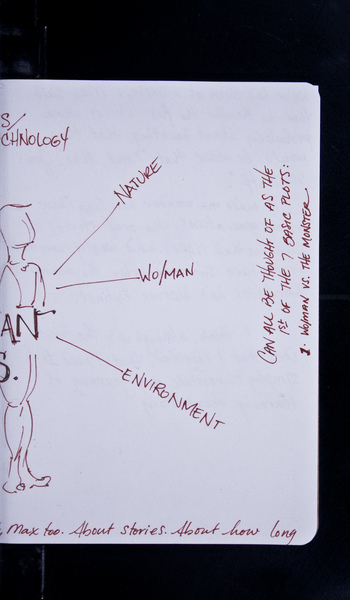 S/
CHNOLOGY
NATURE
WO/MAN
AN
S.
ENVIRONMENT
CAN ALL BE THOUGHT OF AS THE
1ST OF THE 7 BASIC PLOTS:
1. WO/MAN VS. THE MONSTER
, Max too. About stories. About how long